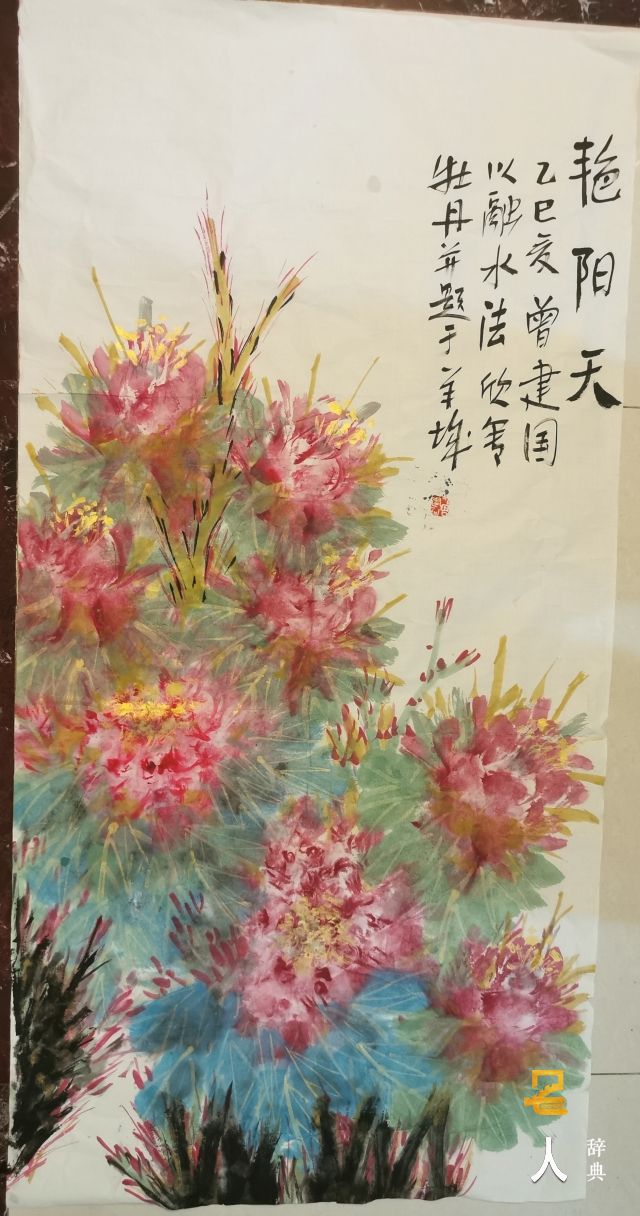 艳阳天
乙巳夏曾建国
以融水法欣写
牡丹并题于羊城
名人
辞典